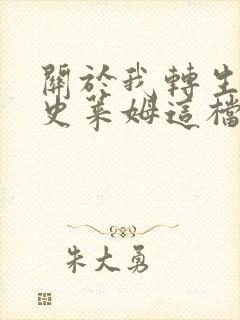 關於我轉生
史萊姆這檔
朱大勇